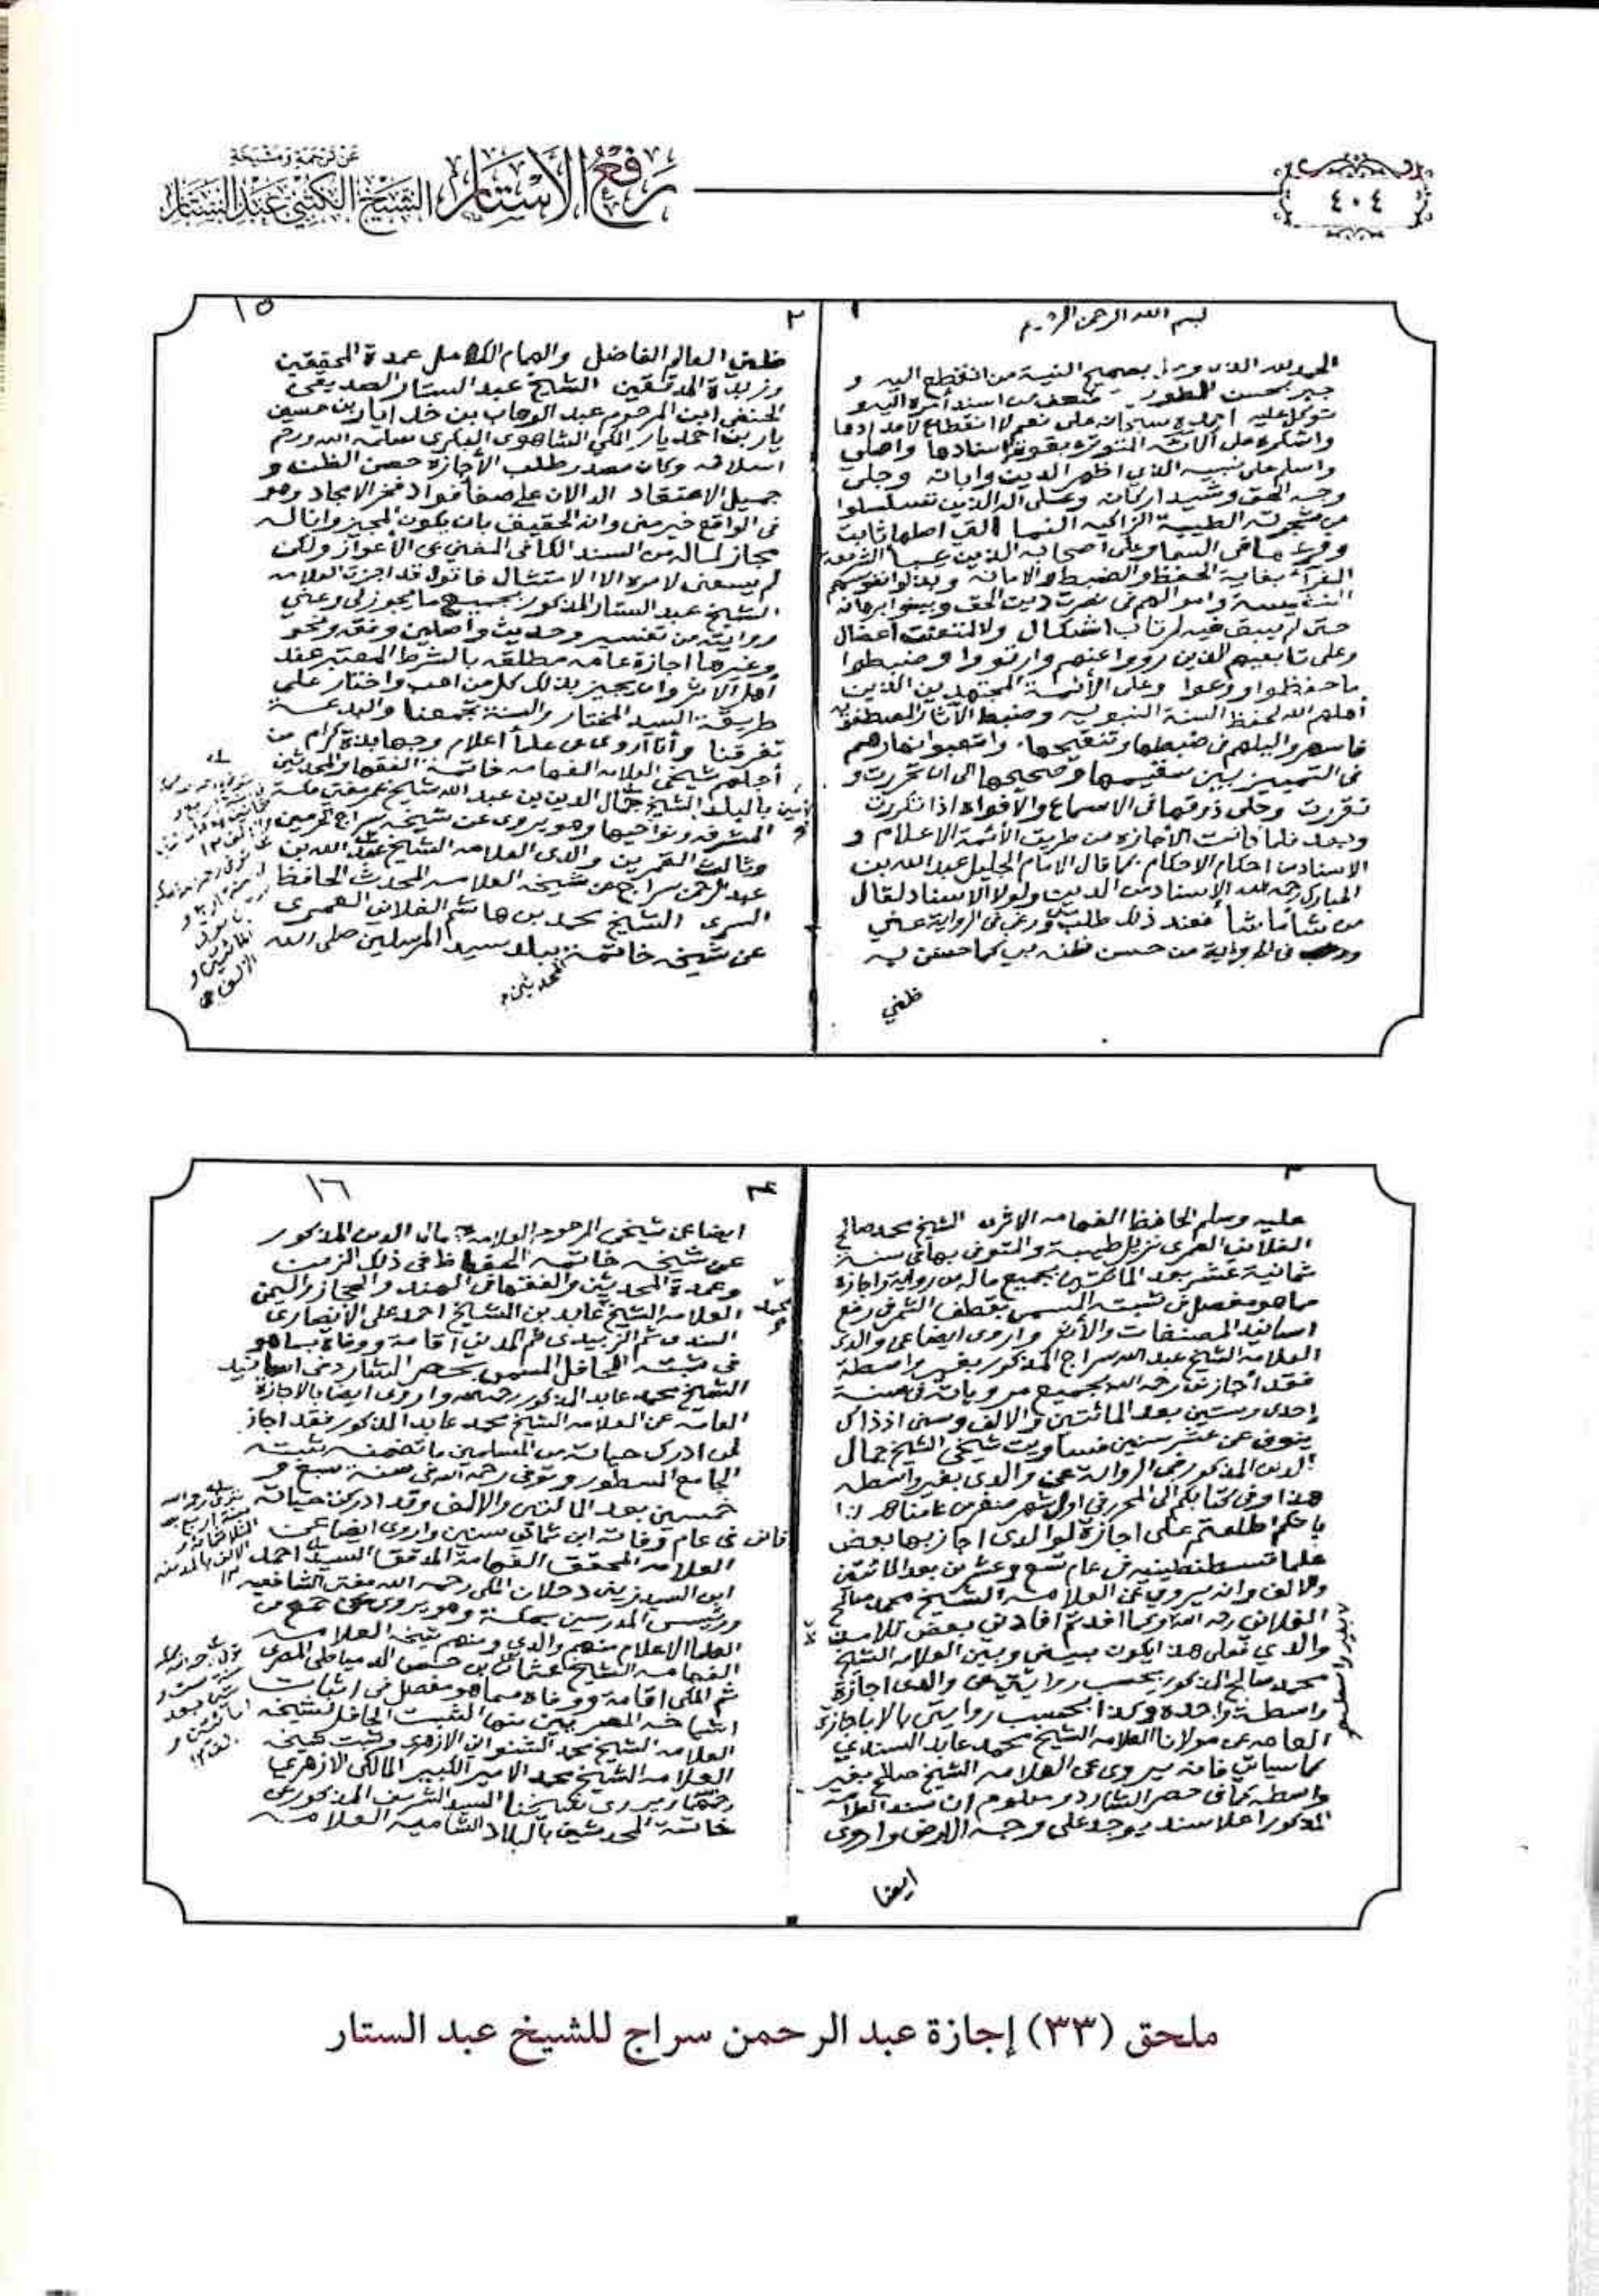 عن ترجمة ومشيخة
رفع الأستار الشيخ الكتبي عبد الستار
٤٠٤
١
بسم الله الرحمن الرحيم
الحمد لله بصحيح النية من انقطع اليه و
جبر بحسن من اسند أمره اليه و
توكل عليه احمده سبحانه على نعم لا انقطاع لامدادها
واشكره على آلائه المتواترة بقوة اسنادها واصلي
واسلم على نبيه الذي اظهر الدين وابانه وجلى
وجه الحق وشيد اركانه وعلى آله الذين تسلسلوا
من شجرته الطيبة الزاكية النما التي اصلها ثابت
وفرعها في السما وعلى اصحابه الذين
بغاية الحفظ والضبط والامانة وبذلوا نفوسهم
النفيسة واموالهم في نصرة دين الحق وبينوا برهانه
حتى لم يبق فيه لمرتاب اشكال ولا لمتعنت اعضال
وعلى تابعيهم الذين رووا عنهم وارتووا وضبطوا
ما حفظوا ووعوا وعلى الأئمة المجتهدين الذين
أهلهم الله لحفظ السنة النبوية وضبط الآثار المصطفوية
فاسهروا ليلهم في ضبطها وتنقيحها واتعبوا نهارهم
في التمييز بين سقيمها وصحيحها الى ان تحررت و
تقررت وحلى ذوقها في الاسماع والافواه اذا تكررت
وبعد فلما كانت الأجازه من طريق الأئمة الاعلام و
الاسناد من احكام الاحكام كما قال الامام الجليل عبد الله بن
المبارك رحمه الله الإسناد من الدين ولولا الاسناد لقال
من شاء ما شاء فعند ذلك طلب ورغب في الرواية عني
في الرواية من حسن ظنه بي كما حسن به
ظني
٢
١٥
ظني العالم الفاضل والهمام الكامل عمدة المحققين
وزبدة المدققين الشيخ عبد الستار الصديقي
الحنفي ابن المرحوم عبد الوهاب بن خدايار بن حسين
يار بن احمد يار المكي الشاهوي البكري سلمه الله ورحم
اسلافه وكان مصدر طلب الأجازة حسن الظن و
جميل الاعتقاد الدالان على صفا فؤاد فخر الامجاد وهو
في الواقع خير مني وانه الحقيق بان يكون المجيز وانا له
مجاز لماله من السند الكافي المغني عن الأعواز ولكن
لم يسعني لامره الا الامتثال فاقول قد اجزت العلامه
الشيخ عبد الستار المذكور بجميع ما يجوز لي وعني
روايته من تفسير وحديث واصلين وفقه ونحو
وغيرها اجازة عامه مطلقه بالشرط المعتبر عند
أهل الاثر وان يجيز بذلك كل من احب واختار على
طريقة السيد المختار والسنة تجمعنا والبدعة
تفرقنا وأنا أروي عن علما أعلام وجهابذة كرام من
أجلهم شيخي العلامه الفهامه خاتمة الفقها والمحدثين
بالبلد الشيخ جمال الدين بن عبد الله شيخ عمر مفتي مكة
المشرفه ونواحيها وهو يروي عن شيخه سراج الحرمين
وثالث القمرين والدي العلامه الشيخ عبد الله بن
عبد الرحمن سراج عن شيخه العلامه المحدث الحافظ
السري الشيخ محمد بن هاشم الفلاني العمري
عن شيخه خاتمة ببلد سيد المرسلين صلى الله
المحدثين
٣
عليه وسلم الحافظ الفهامه الاثري الشيخ محمد صالح
الفلاني العمري نزيل طيبة والمتوفى بها في سنة
ثمانية عشر بعد المائتين بجميع ماله من رواية واجازة
مما هو مفصل في ثبته المسمى بقطف الثمر في رفع
اسانيد المصنفات والأثر واروي ايضا عن والدي
العلامه الشيخ عبد الله سراج المذكور بغير واسطة
فقد أجازني رحمه الله بجميع مروياته في سنة
إحدى وستين بعد المائتين والالف وسني اذذاك
ينوف عن عشر سنين فساويت شيخي الشيخ جمال
الدين المذكور في الرواية عن والدي بغير واسطه
هذا وفي كتابكم الى المحرر في اول شهر صفر من عامنا هذا
بانكم اطلعتم على اجازة لوالدي اجاز بها بعض
علما قسطنطينيه في عام تسع وعشرين بعد المائتين
والالف وانه يروي عن العلامه الشيخ محمد صالح
الفلاني رحمه الله وكما افدتم افادني بعض تلامذة
والدي فعلى هذا يكون بيني وبين العلامه الشيخ
محمد صالح المذكور بحسب روايتي عن والدي اجازة
واسطة واحده وكذا بحسب روايتي بالاجازة
العامه عن مولانا العلامه الشيخ محمد عابد السندي
كما سياتي فانه يروي عن العلامه الشيخ صالح بغير
واسطه كما في حصر الشارد ومعلوم ان سند العلامة
المذكور اعلا سند يوجد على وجه الارض واروي
ايضا
٤
١٦
ايضا عن شيخي المرحوم العلامه جمال الدين المذكور
عن شيخه خاتمة الحفاظ في ذلك الزمن
وعمدة المحدثين والفقها في الهند والحجاز واليمن
العلامه الشيخ عابد بن الشيخ احمد علي الأنصاري
محمد
السندي ثم الزبيدي ثم المدني اقامة ووفاة بما هو
في ثبته الحافل المسمى بحصر الشارد في اسانيد
الشيخ محمد عابد المذكور رحمه الله واروي ايضا بالاجازة
العامه عن العلامه الشيخ محمد عابد المذكور فقد اجاز
لمن ادرك حياته من المسلمين ما تضمنه ثبته
الجامع المسطور وتوفي رحمه الله في سنة سبع و
خمسين بعد المائتين والالف وقد ادركت حياته
فانى في عام وفاته ابن ثماني سنين واروي ايضا عن
العلامه المحقق الفهامة المدقق السيد احمد
ابن السيد زيني دحلان المكي رحمه الله مفتي الشافعيه
ورئيس المدرسين بمكة وهو يروي عن جمع من
العلما الاعلام منهم والدي ومنهم شيخه العلامه
الفهامه الشيخ عثمان بن حسن الدمياطي المصري
ثم المكي اقامة ووفاه مما هو مفصل في اثبات
اشياخه المصريين منها الثبت الحافل لشيخه
العلامه الشيخ محمد الشنواني الازهري وثبت شيخه
العلامه الشيخ محمد الامير الكبير المالكي الازهري
ويروي شيخنا السيد الشريف المذكور عن
خاتمة المحدثين بالبلاد الشاميه العلامه
ملحق (٣٣) إجازة عبد الرحمن سراج للشيخ عبد الستار